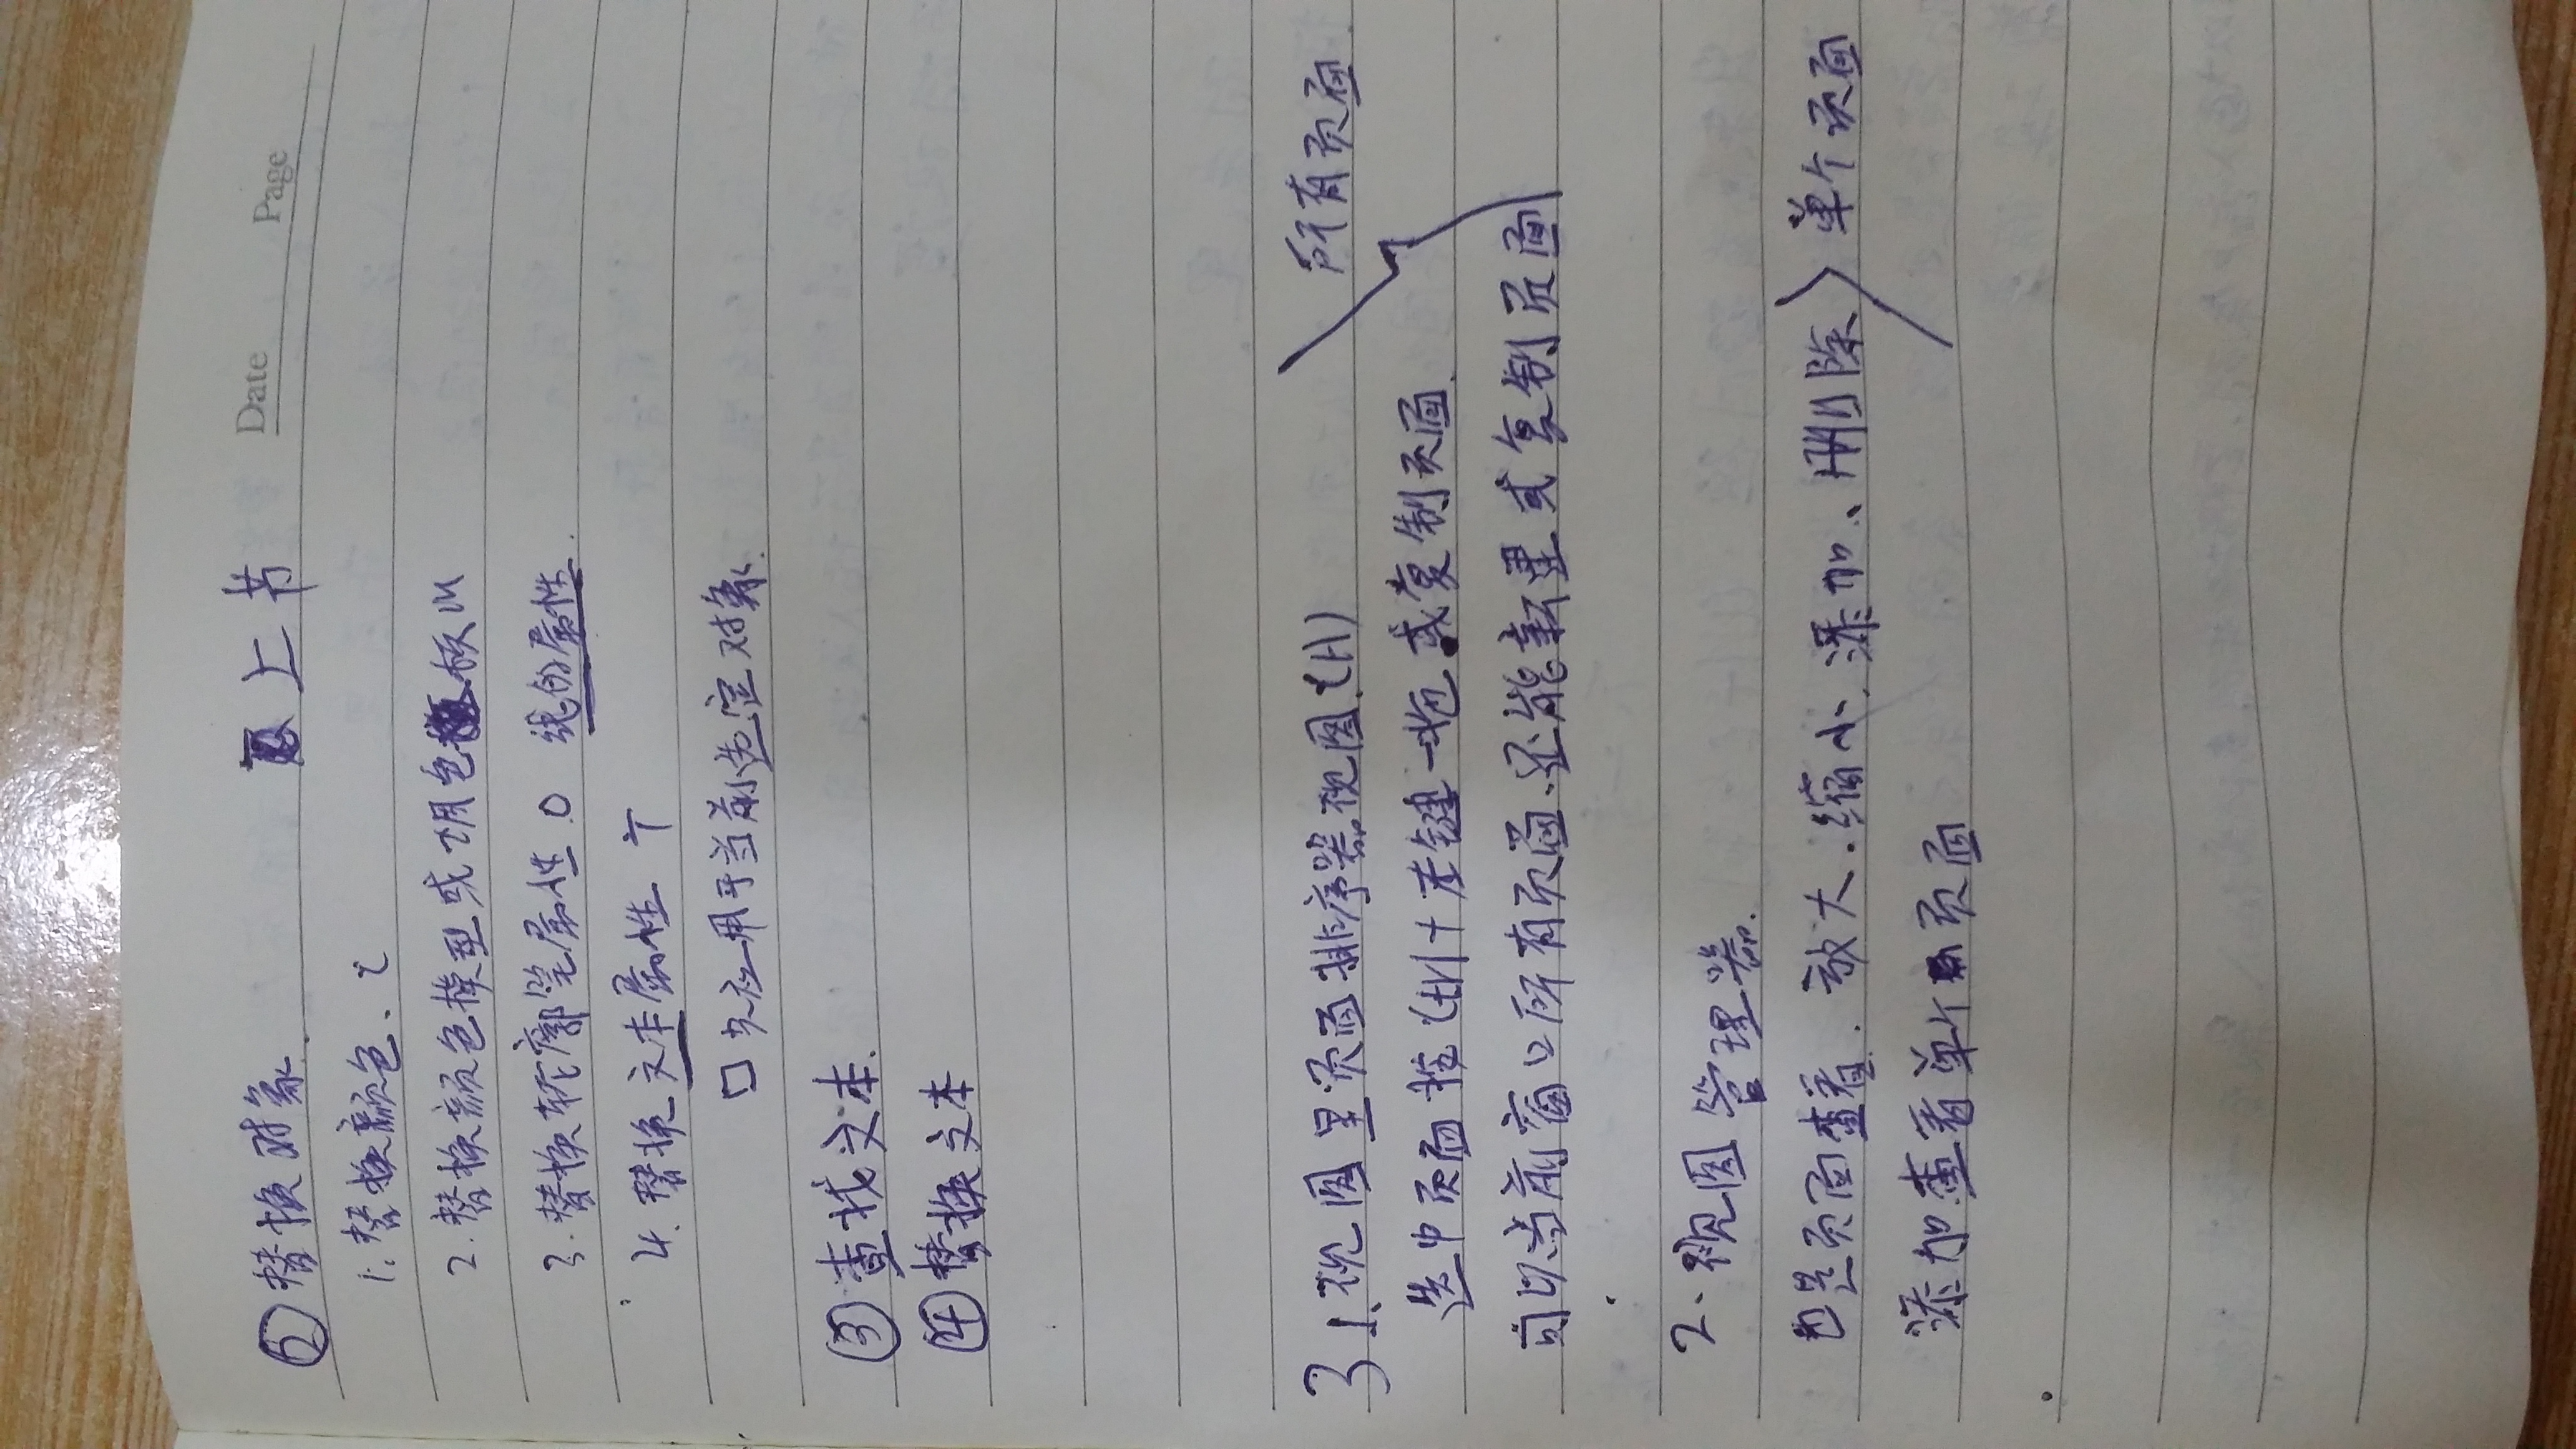 上节
Date Page
② 替换对象
1. 替换颜色. 2
2. 替换颜色模型或调色板 M
3. 替换轮廓笔属性. O 线的属性.
4. 替换文本属性 个
口 只应用于当前选定对象.
③ 查找文本.
④ 替换文本
3 1、视图里页面排序器视图 (H) 所有页面
选中页面按 Ctrl + 左键一拖 或复制页面.
可以当前窗口所有页面、还能新建或复制页面
2、视图管理器.
也是页面查看. 放大. 缩小、添加、删除 单个页面
添加查看单个页面